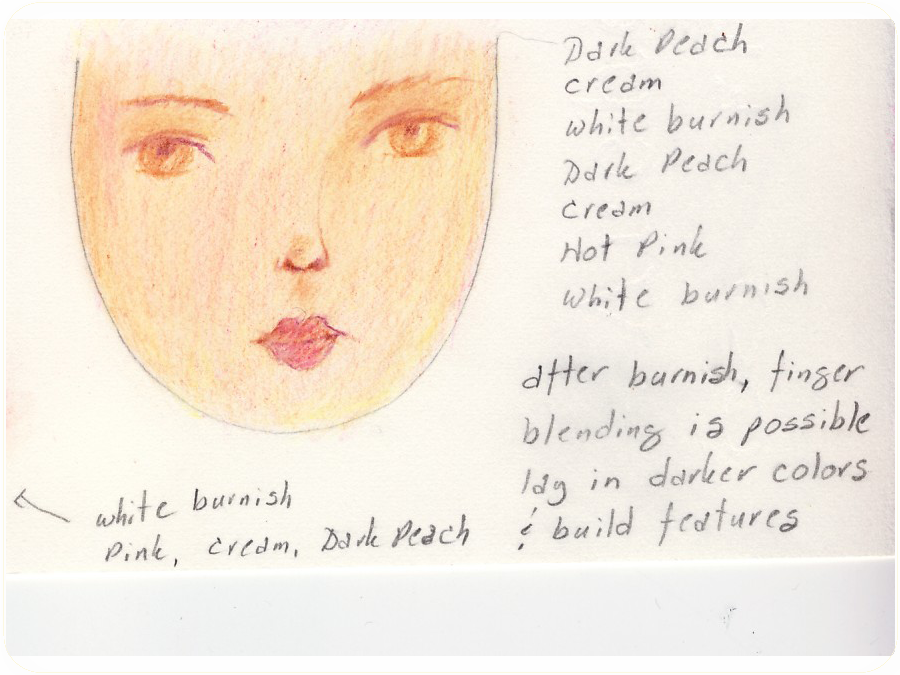 Dark Peach
cream
white burnish
Dark Peach
cream
Hot Pink
white burnish
after burnish, finger
blending is possible
lay in darker colors
& build features
white burnish
Pink, cream, Dark Peach